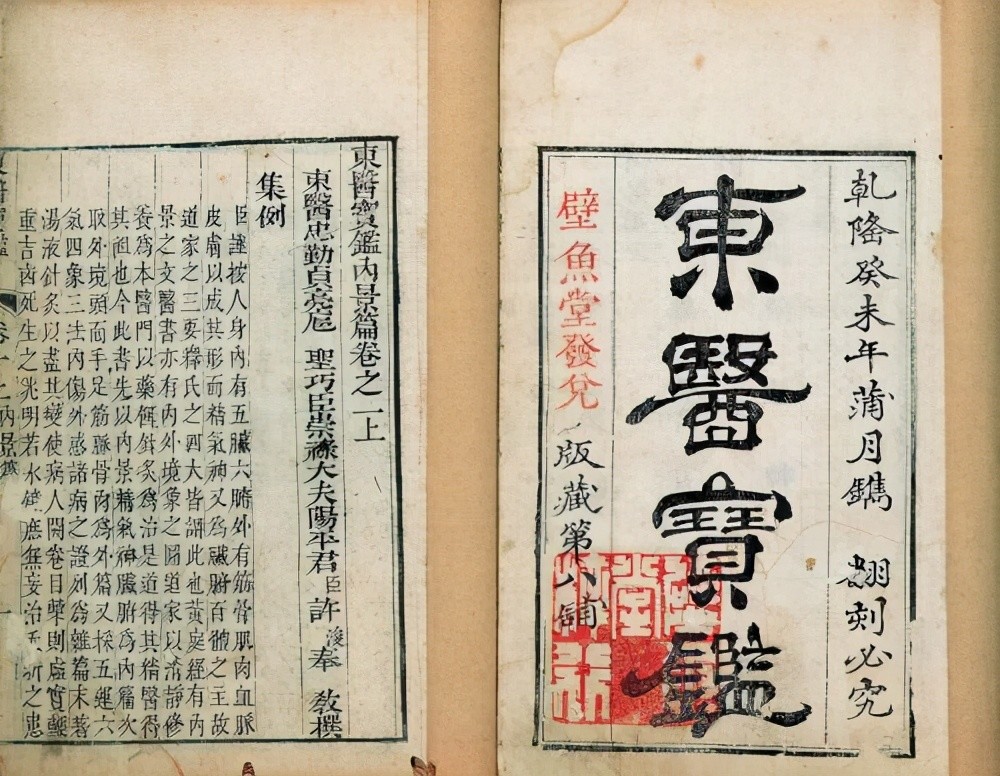 乾隆癸未年蒲月鐫 翻刻必究
東醫寶鑑
壁魚堂發兌 版藏第八鋪
東醫寶鑑內景篇卷之一上
東醫忠勤貞亮扈 聖巧臣崇祿大夫陽平君臣許浚奉 敎撰
集例
臣謹按人身內有五臟六腑外有筋骨肌肉血脈
皮膚以成其形而精氣神又爲臟腑百體之主故
道家之三要釋氏之四大皆謂此也黃庭經有內
景之文醫書亦有內外境象之圖道家以淸靜修
養爲本醫門以藥餌針灸爲治是道得其精醫得
其粗也今此書先以內景精氣神臟腑爲內篇次
取外境頭面手足筋脉骨肉爲外篇又採五運六
氣四象三法內傷外感諸病之證列爲雜篇末著
湯液針灸以盡其變使病人開卷目擊則虛實輕
重吉凶死生之兆明若水鏡庶無妄治夭折之患